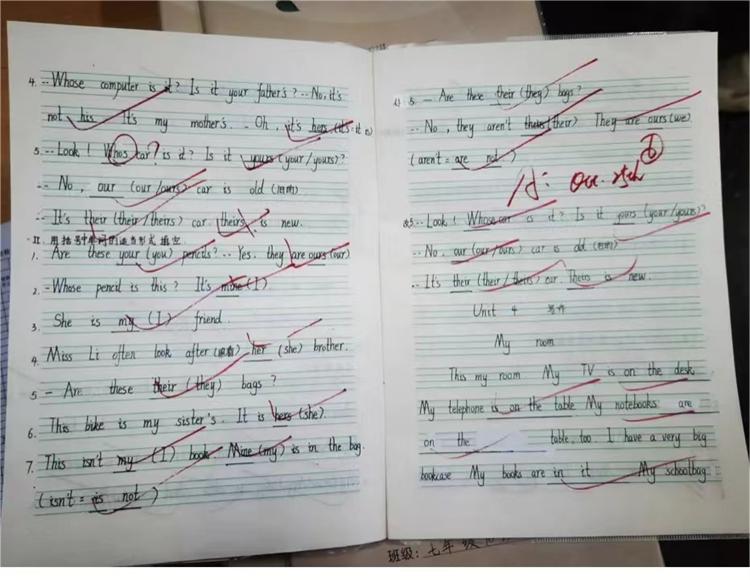 4. -- Whose computer is it? Is it your father's? -- No, it's
not his. It's my mother's. - Oh, it's hers (it's = it is)
5. -- Look! Whos car? is it? Is it yours (your/yours)?
-- No, our (our/ours) car is old (旧的)
-- It's their (their/theirs) car. theirs is new.
II. 用括号中单词的适当形式填空
1. Are these your (you) pencils? -- Yes, they are ours (our)
2. - Whose pencil is this? It's mine (I)
3. She is my (I) friend.
4. Miss Li often look after (照看) her (she) brother.
5 - Are these their (they) bags?
6. This bike is my sister's. It is hers (she).
7. This isn't my (I) book. Mine (my) is in the bag.
(isn't = is not)
5. - Are these their (they) bags?
-- No, they aren't theirs (their) They are ours (we)
(aren't = are not)
Oct. 25th
5 -- Look! Whose car is it? Is it yours (your/yours)?
-- No, our (our/ours) car is old (旧的)
-- It's their (their/theirs) car. Theirs is new.
Unit 4
My room
This my room My TV is on the desk
My telephone is on the table My notebooks are
on the table, too I have a very big
bookcase My books are in it My schoolbag
班级: 七年级